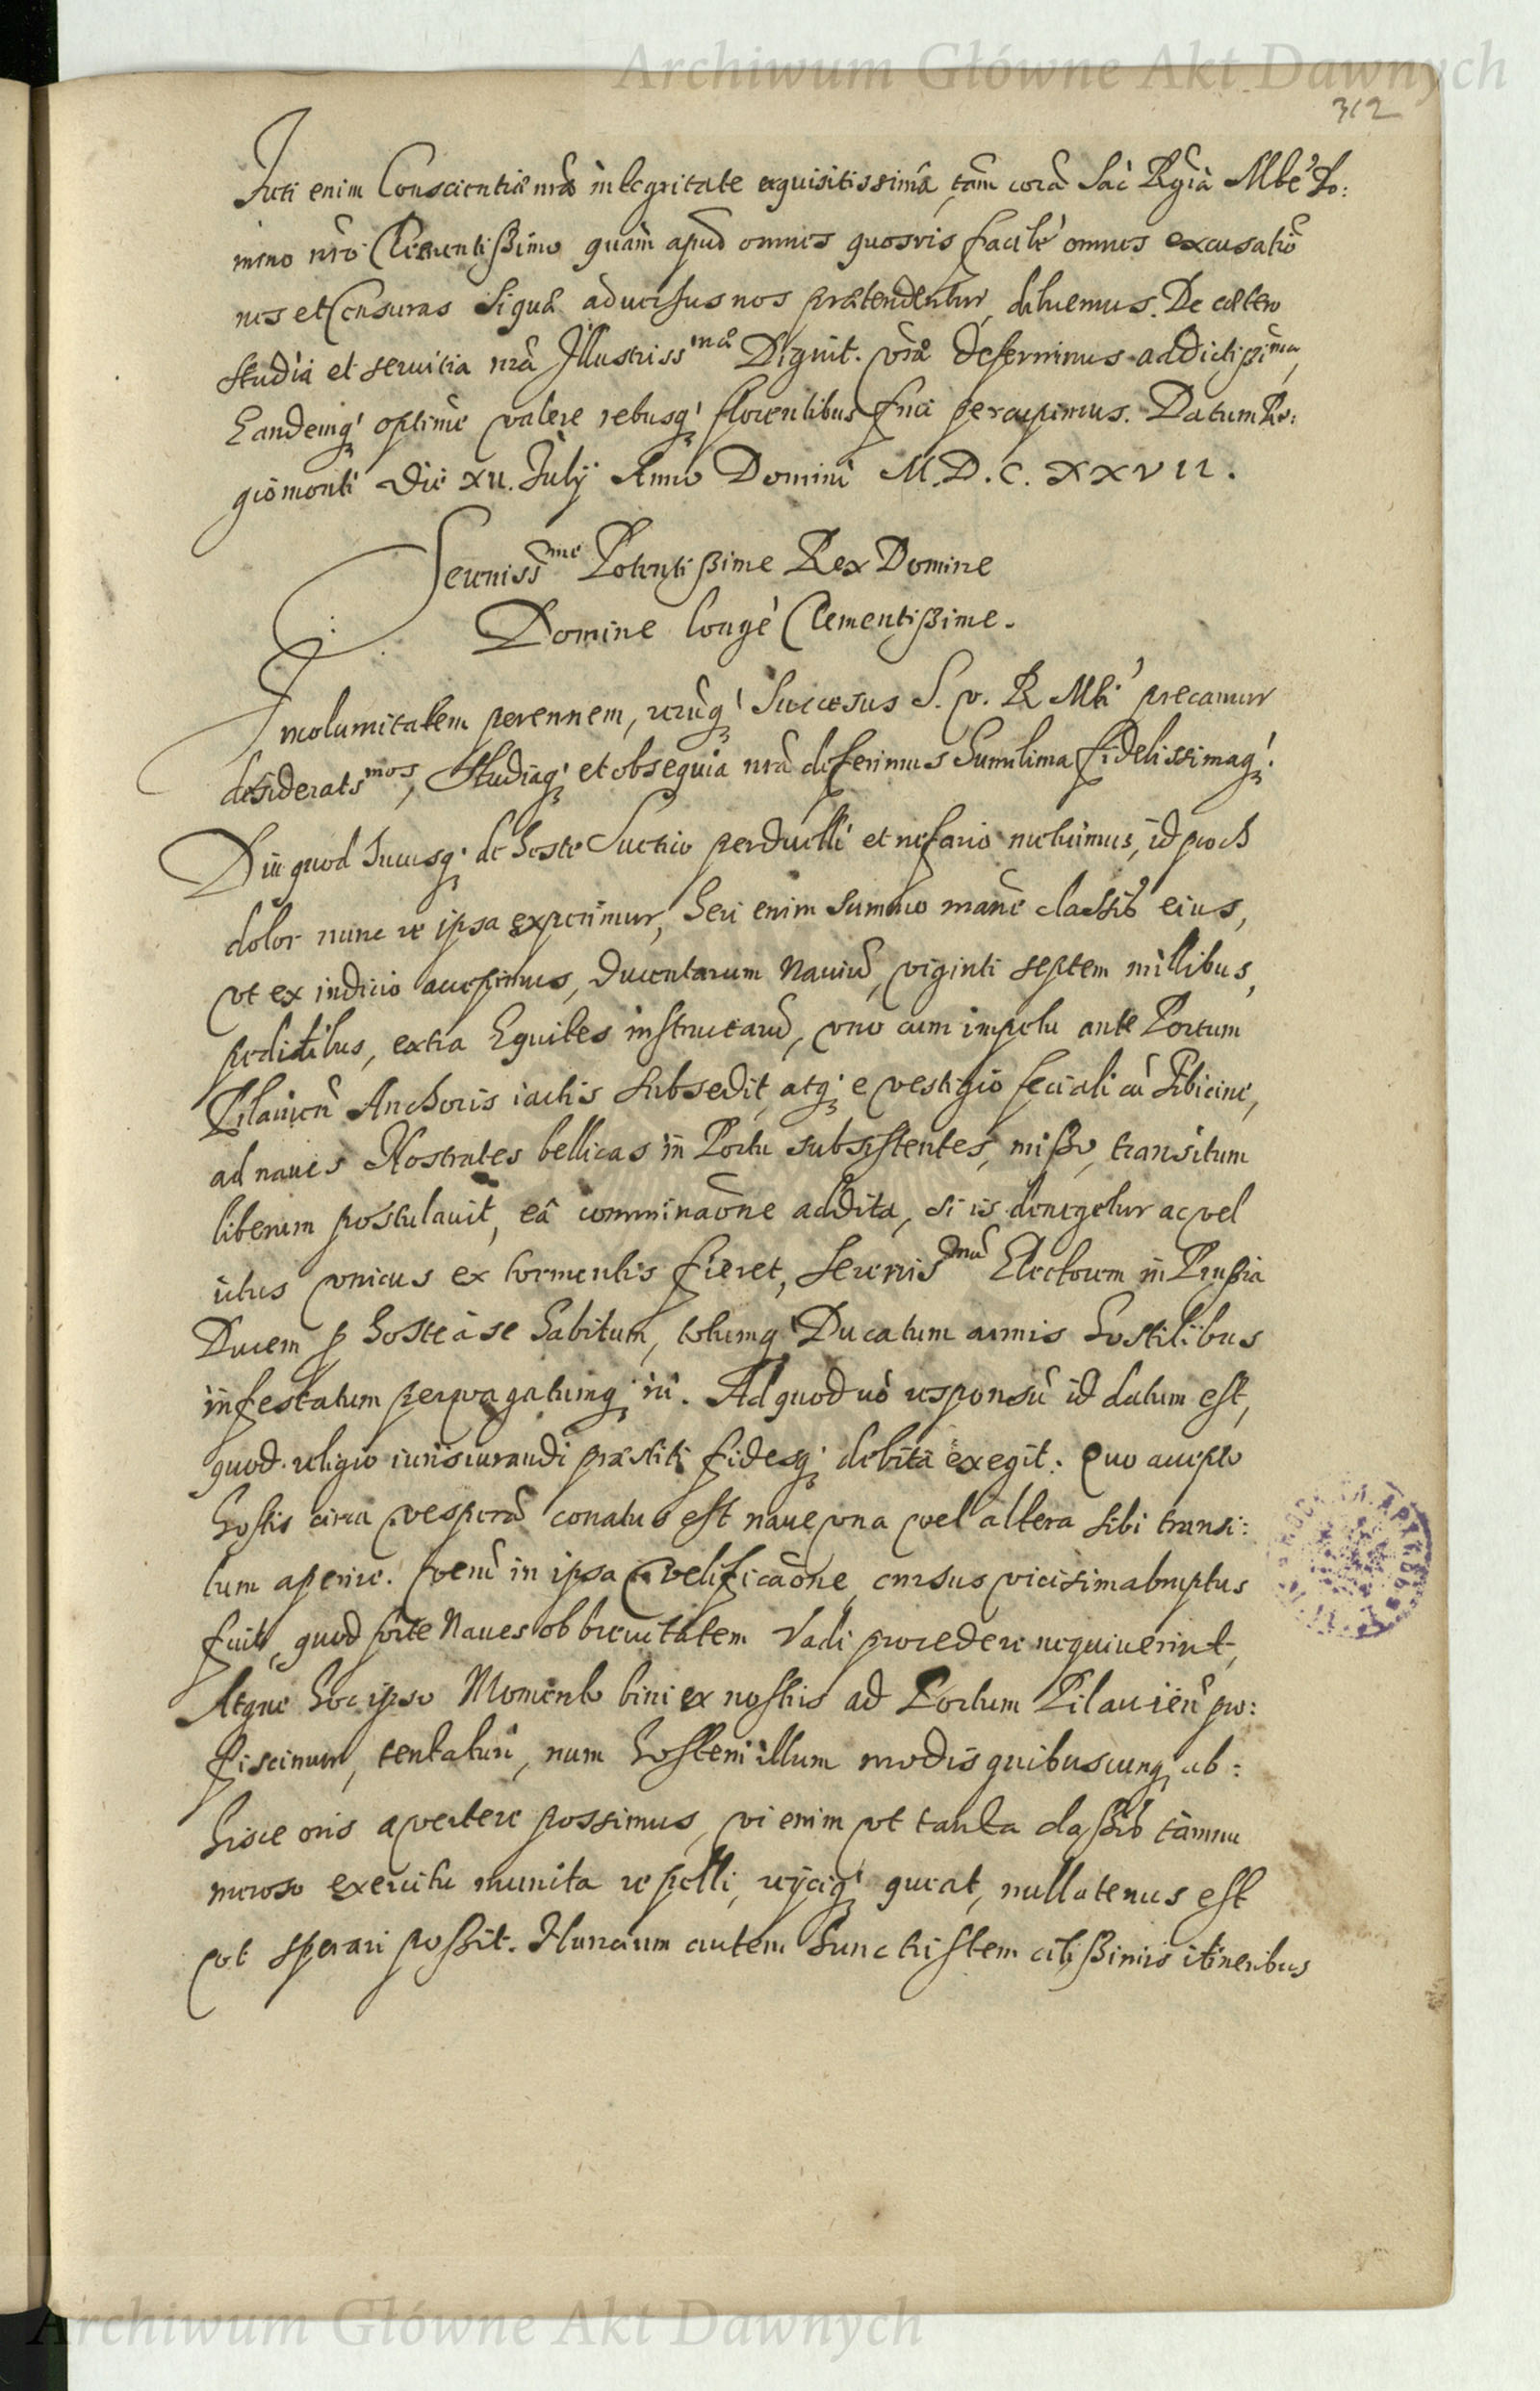 Archiwum Główne Akt Dawnych
312
Iuti enim Conscientiæ nræ integritate exquisitissimâ, tàm corã Sac̃ Rgiã Mtte Do:
mino nrõ Clementißimo quàm apud omnes quosvis facilè omnes excusatiõ
nes et Censuras siquæ adversus nos prætendentur, diluemus. De cætero
studia et servitia nrã Illustriss.mæ Dignit. vræ deferimus addictißima,
Eandemq́ optime valere rebusq́ florentibus frui percupimus. Datum Re:
giomonti Die XII. Julij Anno Domini M.D.C.XXVII.
Sereniss.me Potentißime Rex Domine
Domine longè Clementißime.
Incolumitatem perennem, rerũq́ Successus S. v. R. Mti precamur
desideratss.mos, Studiaq́ et obsequia nrã deferimus humilima fidelissimaq́.
Diu quod hucusq́ de hoste Suetico perduelli et nefario metuimus, id proch
dolor nunc re ipsa experimur, heri enim summo manè classis eius,
vt ex indicio accepimus, ducentarum Naviũ, viginti septem millibus,
peditibus, extra Equites instructarũ, vno cum impetu ante Portum
Pilavien̄ Anchoris iactis subsedit, atq́ e vestigio feciali cũ tibicine,
ad naves Nostrates bellicas in Portu subsistentes, mißo, transitum
liberum postulavit, eâ comminaõne addita, si is denegetur ac vel
ictus vnicus ex tormentis fieret, Serenis.mũ Electorem in Prußia
Ducem p hoste à se habitum, totumq́ Ducatum armis hostilibus
infestatum pervagatumq́ iri. Ad quod vò responsũ id datum est,
quod religio iurisiurandi præstiti fidesq́ debita exegit. Quo accepto
hostis circa vesperã conatus est nave vna vel altera sibi transi:
tum aperire. Verũ in ipsa velificaõne, cursus vicisim abruptus
fuit, quod forte Naves ob brevitatem Vadi procedere nequiverint,
Atque hoc ipso Momento bini ex nostris ad Portum Pilavien̄ pro:
fiscimur, tentaturi, num hostem illum modis quibuscunq́ ab:
hisce oris avertere possimus, vi enim vt tanta claßis tàm nu
meroso exercitu munita repelli, reijciq́ queat, nullatenus est
vt sperari poßit. Nuncium autem hunc tristem citißimis itineribus
Archiwum Główne Akt Dawnych